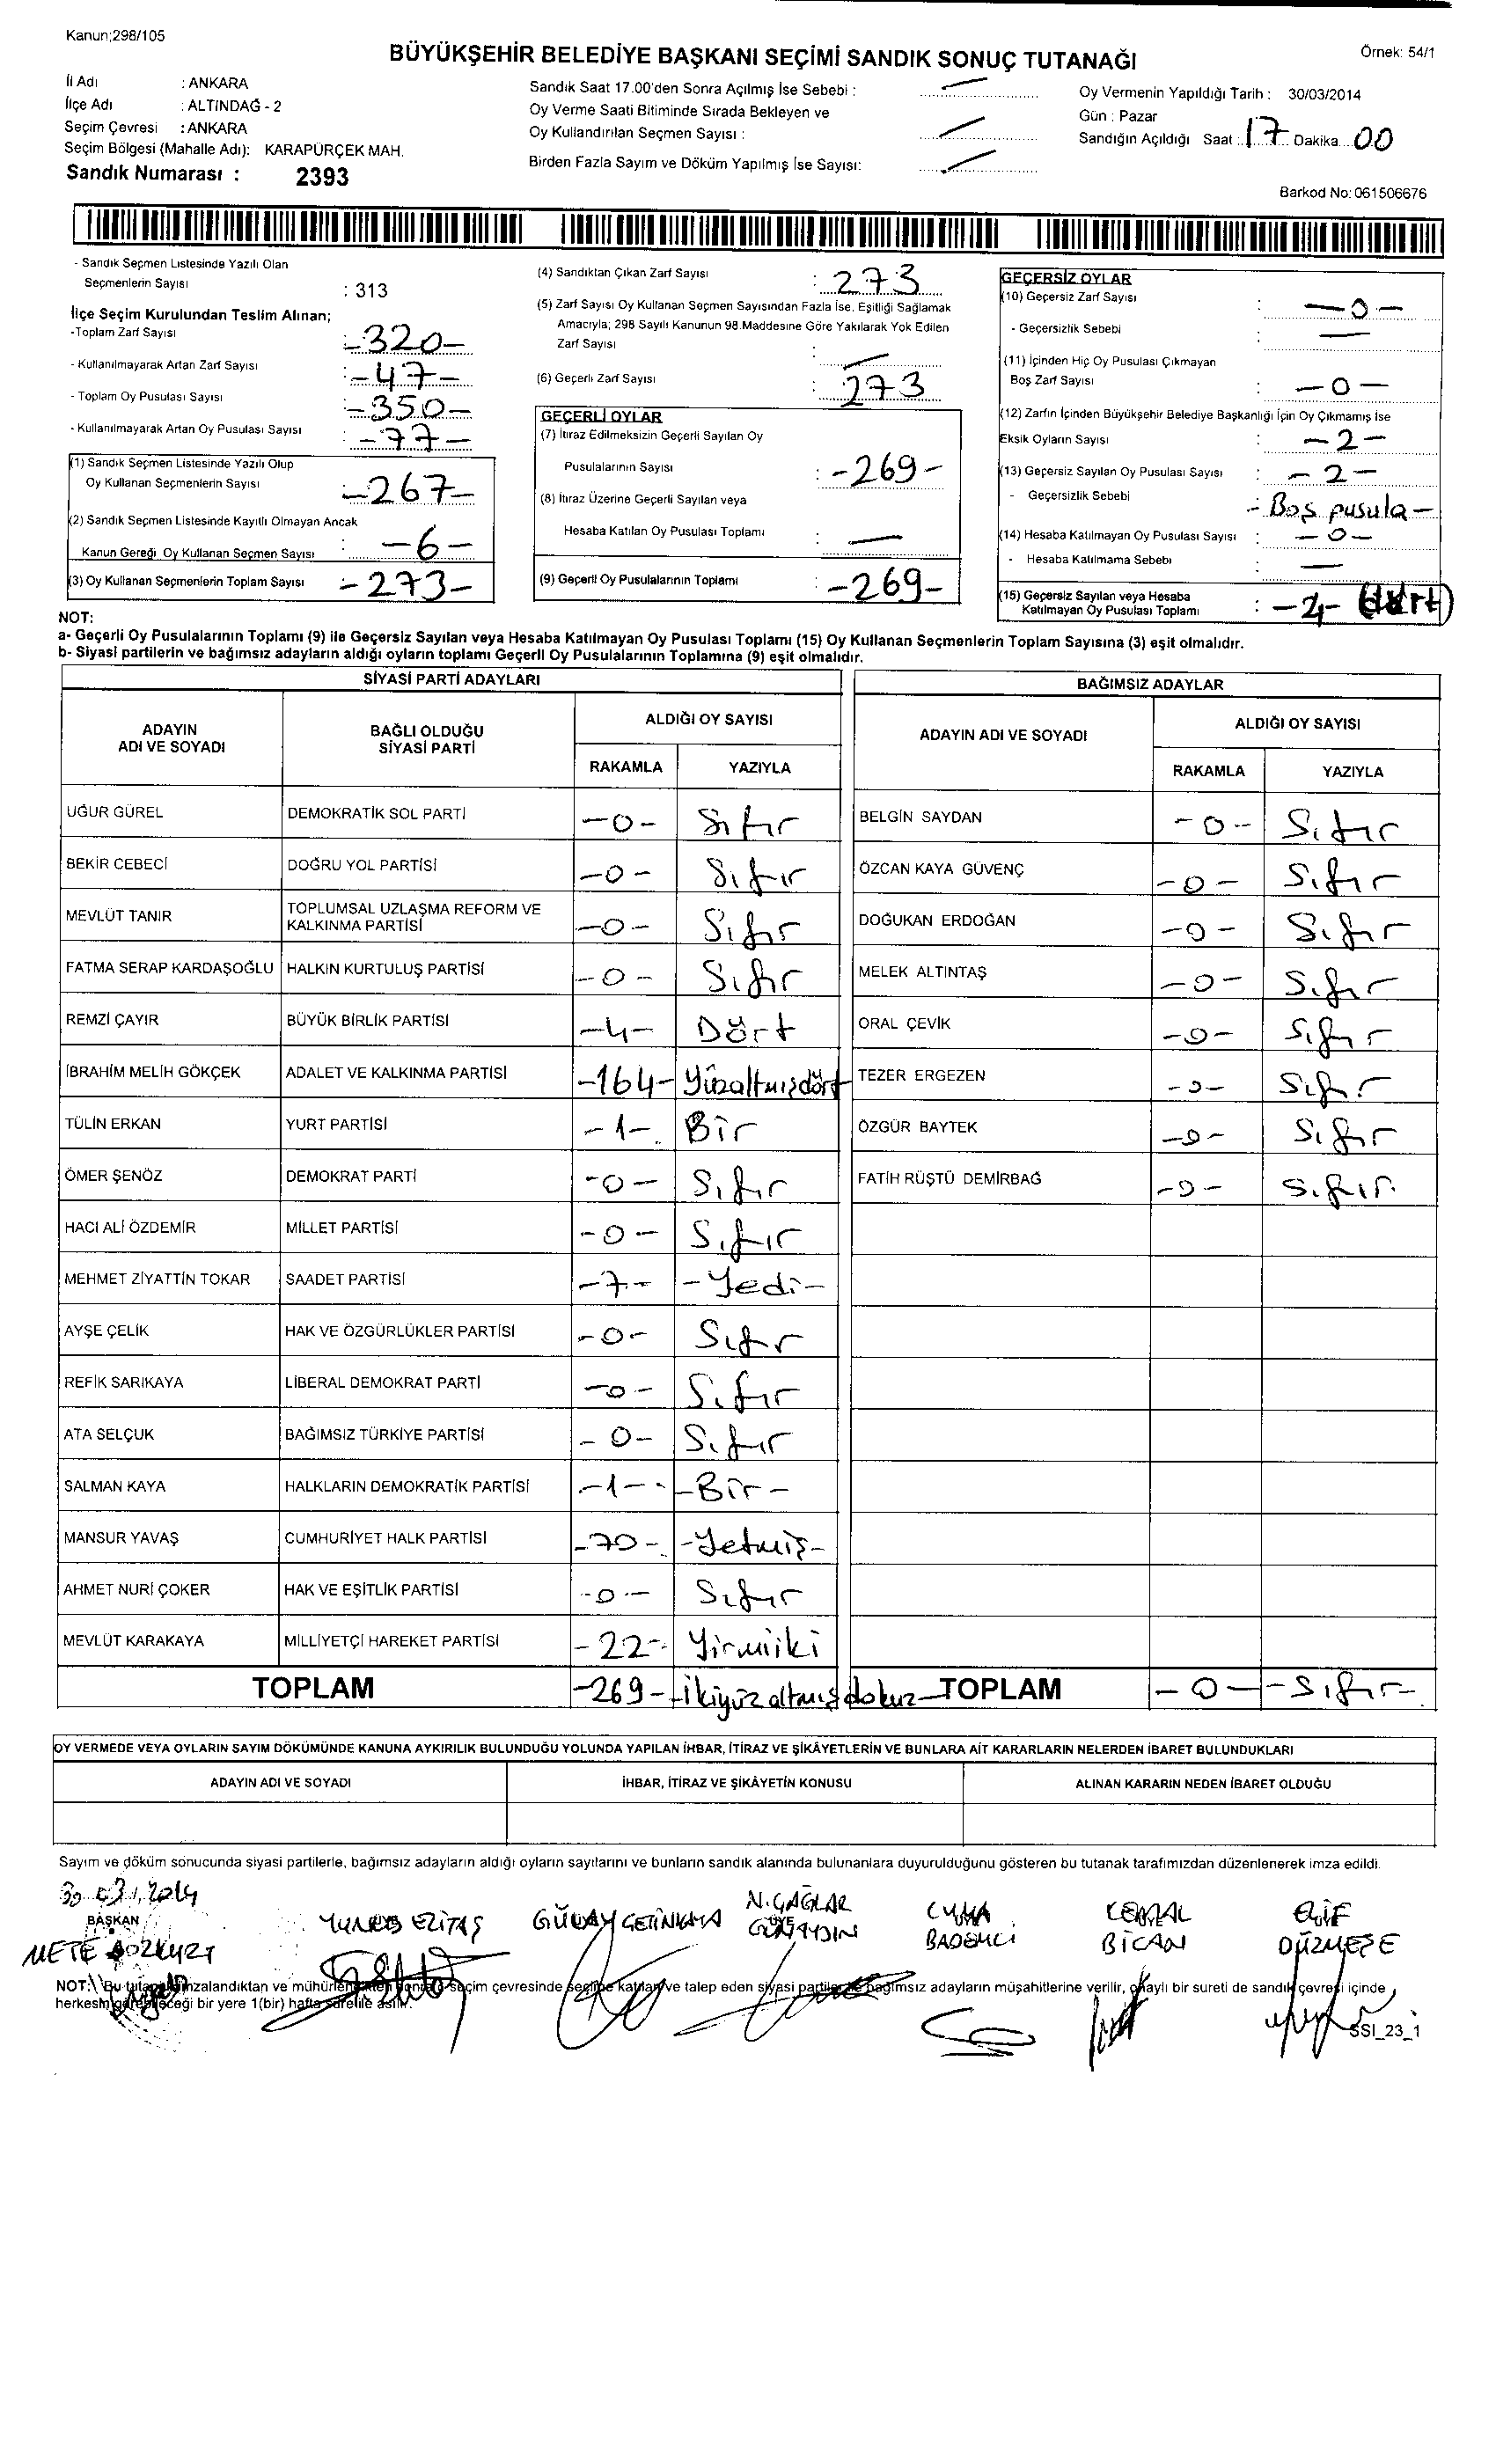 Kanun;298/105
BÜYÜKŞEHİR BELEDİYE BAŞKANI SEÇİMİ SANDIK SONUÇ TUTANAĞI
Örnek: 54/1
İl Adı : ANKARA
İlçe Adı : ALTINDAĞ - 2
Seçim Çevresi : ANKARA
Seçim Bölgesi (Mahalle Adı): KARAPÜRÇEK MAH.
Sandık Numarası : 2393
Sandık Saat 17.00'den Sonra Açılmış İse Sebebi :
Oy Verme Saati Bitiminde Sırada Bekleyen ve
Oy Kullandırılan Seçmen Sayısı :
Birden Fazla Sayım ve Döküm Yapılmış İse Sayısı:
Oy Vermenin Yapıldığı Tarih : 30/03/2014
Gün : Pazar
Sandığın Açıldığı Saat : 17 Dakika 00
Barkod No:061506676
- Sandık Seçmen Listesinde Yazılı Olan
Seçmenlerin Sayısı : 313
İlçe Seçim Kurulundan Teslim Alınan;
-Toplam Zarf Sayısı : -320-
- Kullanılmayarak Artan Zarf Sayısı : -47-
- Toplam Oy Pusulası Sayısı : -350-
- Kullanılmayarak Artan Oy Pusulası Sayısı : -77-
(1) Sandık Seçmen Listesinde Yazılı Olup
Oy Kullanan Seçmenlerin Sayısı -267-
(2) Sandık Seçmen Listesinde Kayıtlı Olmayan Ancak
Kanun Gereği Oy Kullanan Seçmen Sayısı : -6-
(3) Oy Kullanan Seçmenlerin Toplam Sayısı : -273-
(4) Sandıktan Çıkan Zarf Sayısı : 273
(5) Zarf Sayısı Oy Kullanan Seçmen Sayısından Fazla İse, Eşitliği Sağlamak
Amacıyla; 298 Sayılı Kanunun 98.Maddesine Göre Yakılarak Yok Edilen
Zarf Sayısı :
(6) Geçerli Zarf Sayısı : 273
GEÇERLİ OYLAR
(7) İtiraz Edilmeksizin Geçerli Sayılan Oy
Pusulalarının Sayısı : -269-
(8) İtiraz Üzerine Geçerli Sayılan veya
Hesaba Katılan Oy Pusulası Toplamı : —
(9) Geçerli Oy Pusulalarının Toplamı : -269-
GEÇERSİZ OYLAR
(10) Geçersiz Zarf Sayısı : -0-
- Geçersizlik Sebebi : —
(11) İçinden Hiç Oy Pusulası Çıkmayan
Boş Zarf Sayısı : -0-
(12) Zarfın İçinden Büyükşehir Belediye Başkanlığı İçin Oy Çıkmamış İse
Eksik Oyların Sayısı : -2-
(13) Geçersiz Sayılan Oy Pusulası Sayısı : -2-
- Geçersizlik Sebebi : - Boş pusula -
(14) Hesaba Katılmayan Oy Pusulası Sayısı : -0-
- Hesaba Katılmama Sebebi : —
(15) Geçersiz Sayılan veya Hesaba
Katılmayan Oy Pusulası Toplamı : -4- (dört)
NOT:
a- Geçerli Oy Pusulalarının Toplamı (9) ile Geçersiz Sayılan veya Hesaba Katılmayan Oy Pusulası Toplamı (15) Oy Kullanan Seçmenlerin Toplam Sayısına (3) eşit olmalıdır.
b- Siyasi partilerin ve bağımsız adayların aldığı oyların toplamı Geçerli Oy Pusulalarının Toplamına (9) eşit olmalıdır.
SİYASİ PARTİ ADAYLARI
ADAYIN ADI VE SOYADI BAĞLI OLDUĞU SİYASİ PARTİ ALDIĞI OY SAYISI
RAKAMLA YAZIYLA
UĞUR GÜREL DEMOKRATİK SOL PARTİ -0- Sıfır
BEKİR CEBECİ DOĞRU YOL PARTİSİ -0- Sıfır
MEVLÜT TANIR TOPLUMSAL UZLAŞMA REFORM VE KALKINMA PARTİSİ -0- Sıfır
FATMA SERAP KARDAŞOĞLU HALKIN KURTULUŞ PARTİSİ -0- Sıfır
REMZİ ÇAYIR BÜYÜK BİRLİK PARTİSİ -4- Dört
İBRAHİM MELİH GÖKÇEK ADALET VE KALKINMA PARTİSİ -164- Yüzaltmışdört
TÜLİN ERKAN YURT PARTİSİ -1- Bir
ÖMER ŞENÖZ DEMOKRAT PARTİ -0- Sıfır
HACI ALİ ÖZDEMİR MİLLET PARTİSİ -0- Sıfır
MEHMET ZİYATTİN TOKAR SAADET PARTİSİ -7- -Yedi-
AYŞE ÇELİK HAK VE ÖZGÜRLÜKLER PARTİSİ -0- Sıfır
REFİK SARIKAYA LİBERAL DEMOKRAT PARTİ -0- Sıfır
ATA SELÇUK BAĞIMSIZ TÜRKİYE PARTİSİ -0- Sıfır
SALMAN KAYA HALKLARIN DEMOKRATİK PARTİSİ -1- -Bir-
MANSUR YAVAŞ CUMHURİYET HALK PARTİSİ -70- -Yetmiş-
AHMET NURİ ÇOKER HAK VE EŞİTLİK PARTİSİ -0- Sıfır
MEVLÜT KARAKAYA MİLLİYETÇİ HAREKET PARTİSİ -22- Yirmiiki
TOPLAM -269- -ikiyüzaltmışdokuz-
BAĞIMSIZ ADAYLAR
ADAYIN ADI VE SOYADI ALDIĞI OY SAYISI
RAKAMLA YAZIYLA
BELGİN SAYDAN -0- Sıfır
ÖZCAN KAYA GÜVENÇ -0- Sıfır
DOĞUKAN ERDOĞAN -0- Sıfır
MELEK ALTINTAŞ -0- Sıfır
ORAL ÇEVİK -0- Sıfır
TEZER ERGEZEN -0- Sıfır
ÖZGÜR BAYTEK -0- Sıfır
FATİH RÜŞTÜ DEMİRBAĞ -0- Sıfır
TOPLAM -0- -Sıfır-
OY VERMEDE VEYA OYLARIN SAYIM DÖKÜMÜNDE KANUNA AYKIRILIK BULUNDUĞU YOLUNDA YAPILAN İHBAR, İTİRAZ VE ŞİKÂYETLERİN VE BUNLARA AİT KARARLARIN NELERDEN İBARET BULUNDUKLARI
ADAYIN ADI VE SOYADI İHBAR, İTİRAZ VE ŞİKÂYETİN KONUSU ALINAN KARARIN NEDEN İBARET OLDUĞU
Sayım ve döküm sonucunda siyasi partilerle, bağımsız adayların aldığı oyların sayılarını ve bunların sandık alanında bulunanlara duyurulduğunu gösteren bu tutanak tarafımızdan düzenlenerek imza edildi.
30.03.2014
BAŞKAN
METE BOZKURT
YUNUS EZİTAŞ
GÜLAY ÇETİNKAYA
N.ÇAĞLAR GÜNAYDIN
CUMA BADEMCİ
KEMAL BİCAN
ELİF DÜZMEŞE
NOT: Bu tutanak imzalandıktan ve mühürlendikten sonra seçim çevresinde seçime katılan ve talep eden siyasi partiler ile bağımsız adayların müşahitlerine verilir, onaylı bir sureti de sandık çevresi içinde
herkesin görebileceği bir yere 1(bir) hafta süreliie asılır.
SSI_23_1